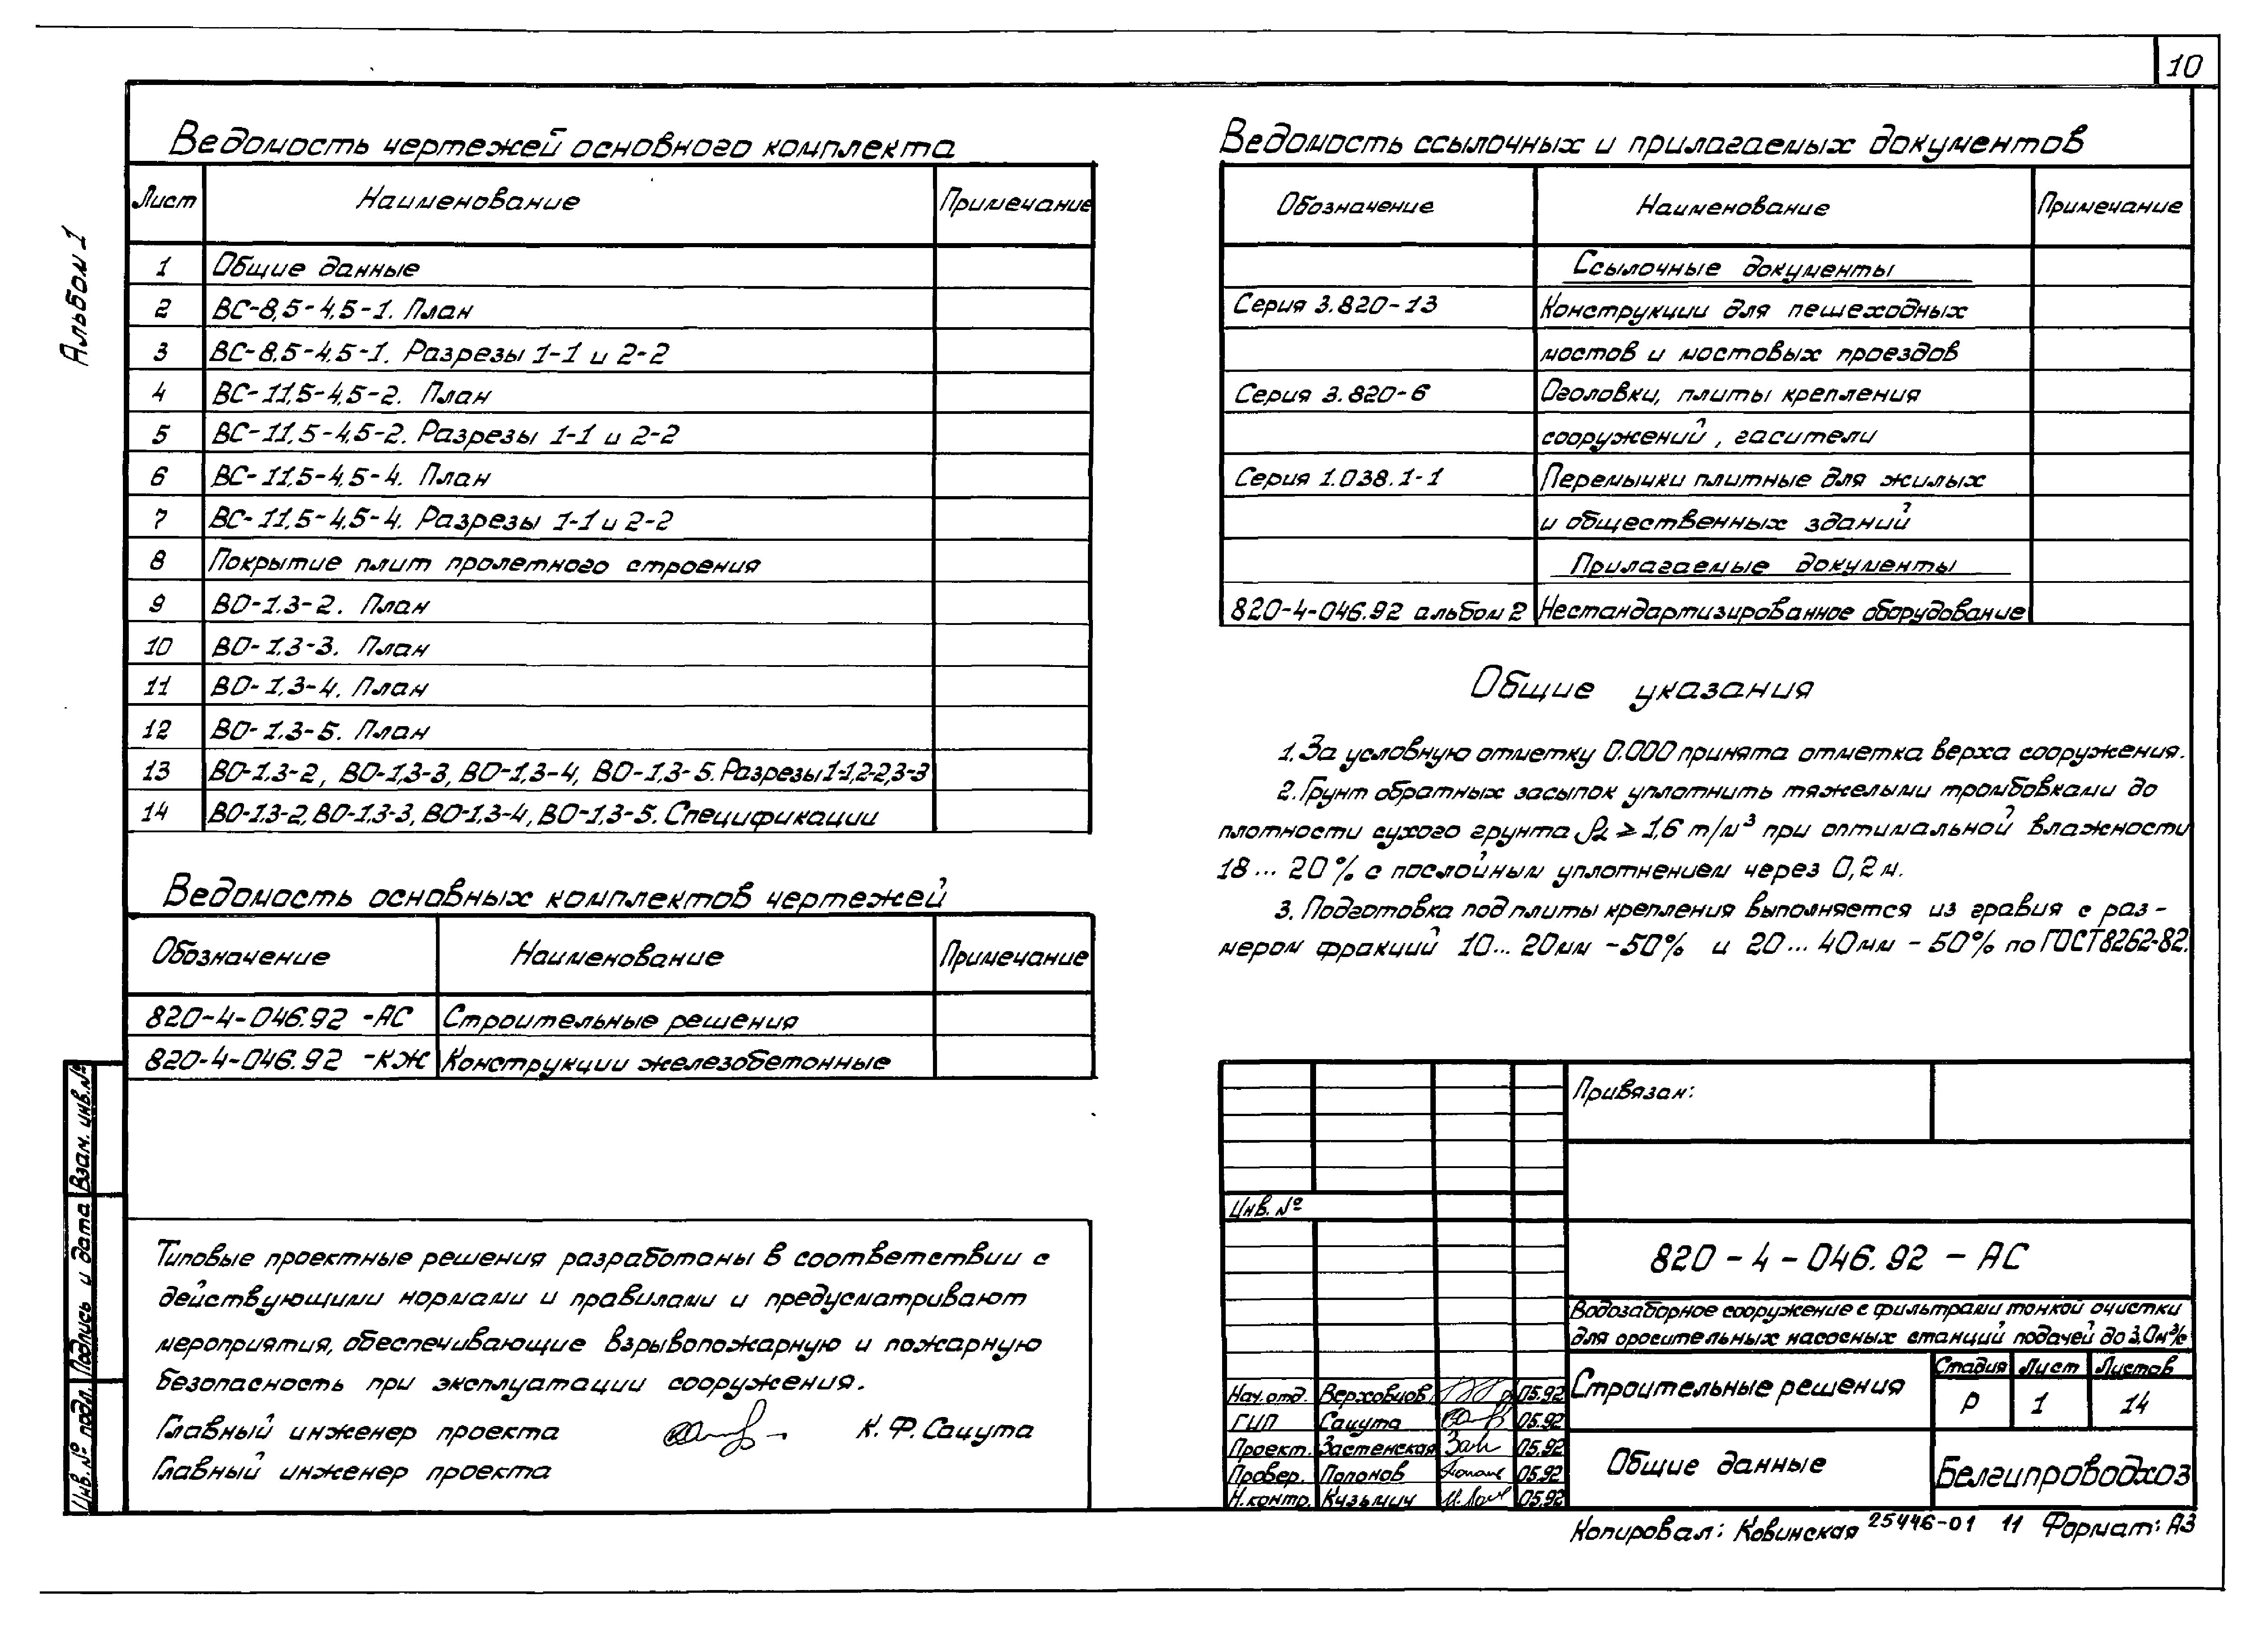 10
Альбом 1
Ведомость чертежей основного комплекта
Лист Наименование Примечание
1 Общие данные
2 ВС-8,5-4,5-1. План
3 ВС-8,5-4,5-1. Разрезы 1-1 и 2-2
4 ВС-11,5-4,5-2. План
5 ВС-11,5-4,5-2. Разрезы 1-1 и 2-2
6 ВС-11,5-4,5-4. План
7 ВС-11,5-4,5-4. Разрезы 1-1 и 2-2
8 Покрытие плит пролетного строения
9 ВО-1,3-2. План
10 ВО-1,3-3. План
11 ВО-1,3-4. План
12 ВО-1,3-5. План
13 ВО-1,3-2, ВО-1,3-3, ВО-1,3-4, ВО-1,3-5. Разрезы 1-1, 2-2, 3-3
14 ВО-1,3-2, ВО-1,3-3, ВО-1,3-4, ВО-1,3-5. Спецификации
Ведомость основных комплектов чертежей
Обозначение Наименование Примечание
820-4-046.92 -АС Строительные решения
820-4-046.92 -КЖ Конструкции железобетонные
Типовые проектные решения разработаны в соответствии с
действующими нормами и правилами и предусматривают
мероприятия, обеспечивающие взрывопожарную и пожарную
безопасность при эксплуатации сооружения.
Главный инженер проекта К.Ф. Сацута
Главный инженер проекта
Ведомость ссылочных и прилагаемых документов
Обозначение Наименование Примечание
Ссылочные документы
Серия 3.820-13 Конструкции для пешеходных
мостов и мостовых проездов
Серия 3.820-6 Оголовки, плиты крепления
сооружений, гасители
Серия 1.038.1-1 Перемычки плитные для жилых
и общественных зданий
Прилагаемые документы
820-4-046.92 альбом 2 Нестандартизированное оборудование
Общие указания
1. За условную отметку 0.000 принята отметка верха сооружения.
2. Грунт обратных засыпок уплотнить тяжелыми трамбовками до
плотности сухого грунта ≥ 1,6 т/м³ при оптимальной влажности
18... 20% с послойным уплотнением через 0,2 м.
3. Подготовка под плиты крепления выполняется из гравия с раз-
мером фракций 10... 20мм -50% и 20... 40мм - 50% по ГОСТ 8262-82.
Привязан:
Инв. №
820-4-046.92 - АС
Водозаборное сооружение с фильтрами тонкой очистки
для оросительных насосных станций подачей до 3,0 м³/с
Строительные решения
Стадия Лист Листов
Р 1 14
Нач. отд. Верховцов 05.92
ГИП Сацута 05.92
Проект. Застенская 05.92
Провер. Попонов 05.92
Н. контр. Кузьмич 05.92
Общие данные
Белгипроводхоз
Копировал: Ковинская 25446-01 11 Формат: А3
Взам. инв. №
Подпись и дата
Инв. № подл.